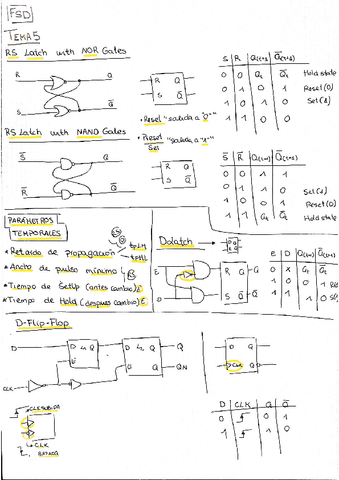 FSD
TEMA 5
RS Latch with NOR Gates
R Q
S Q̅
R Q
S Q̅
• Reset "salida a '0'"
• Preset "salida a '1'"
Set
S R Q(t+1) Q̅(t+1)
0 0 Qt Q̅t Hold state
0 1 0 1 Reset (0)
1 0 1 0 Set (1)
1 1 0 0
RS Latch with NAND Gates
S̅ Q
R̅ Q̅
R Q
S Q̅
S̅ R̅ Q(t+1) Q̅(t+1)
0 0 1 1
0 1 1 0 Set (1)
1 0 0 1 Reset (0)
1 1 Qt Q̅t Hold state
PARÁMETROS
TEMPORALES
• Retardo de propagación tpLH
tpHL
• Ancho de pulso mínimo
• Tiempo de SetUp (antes cambio)
• Tiempo de Hold (despues cambio)
D latch
D Q
E Q̅
E
D
R Q Q
S Q̅ Q̅
E D Q(t+1) Q̅(t+1)
0 X Qt Q̅t
1 0 0 1
1 1 1 0
D-Flip-Flop
D
D L1 Q
D L2 Q Q
Q QN
CLK
D Q
CLK Q̅
CLK SUBIDA
CLK
BAJADA
D CLK Q Q̅
0 0 1
1 1 0